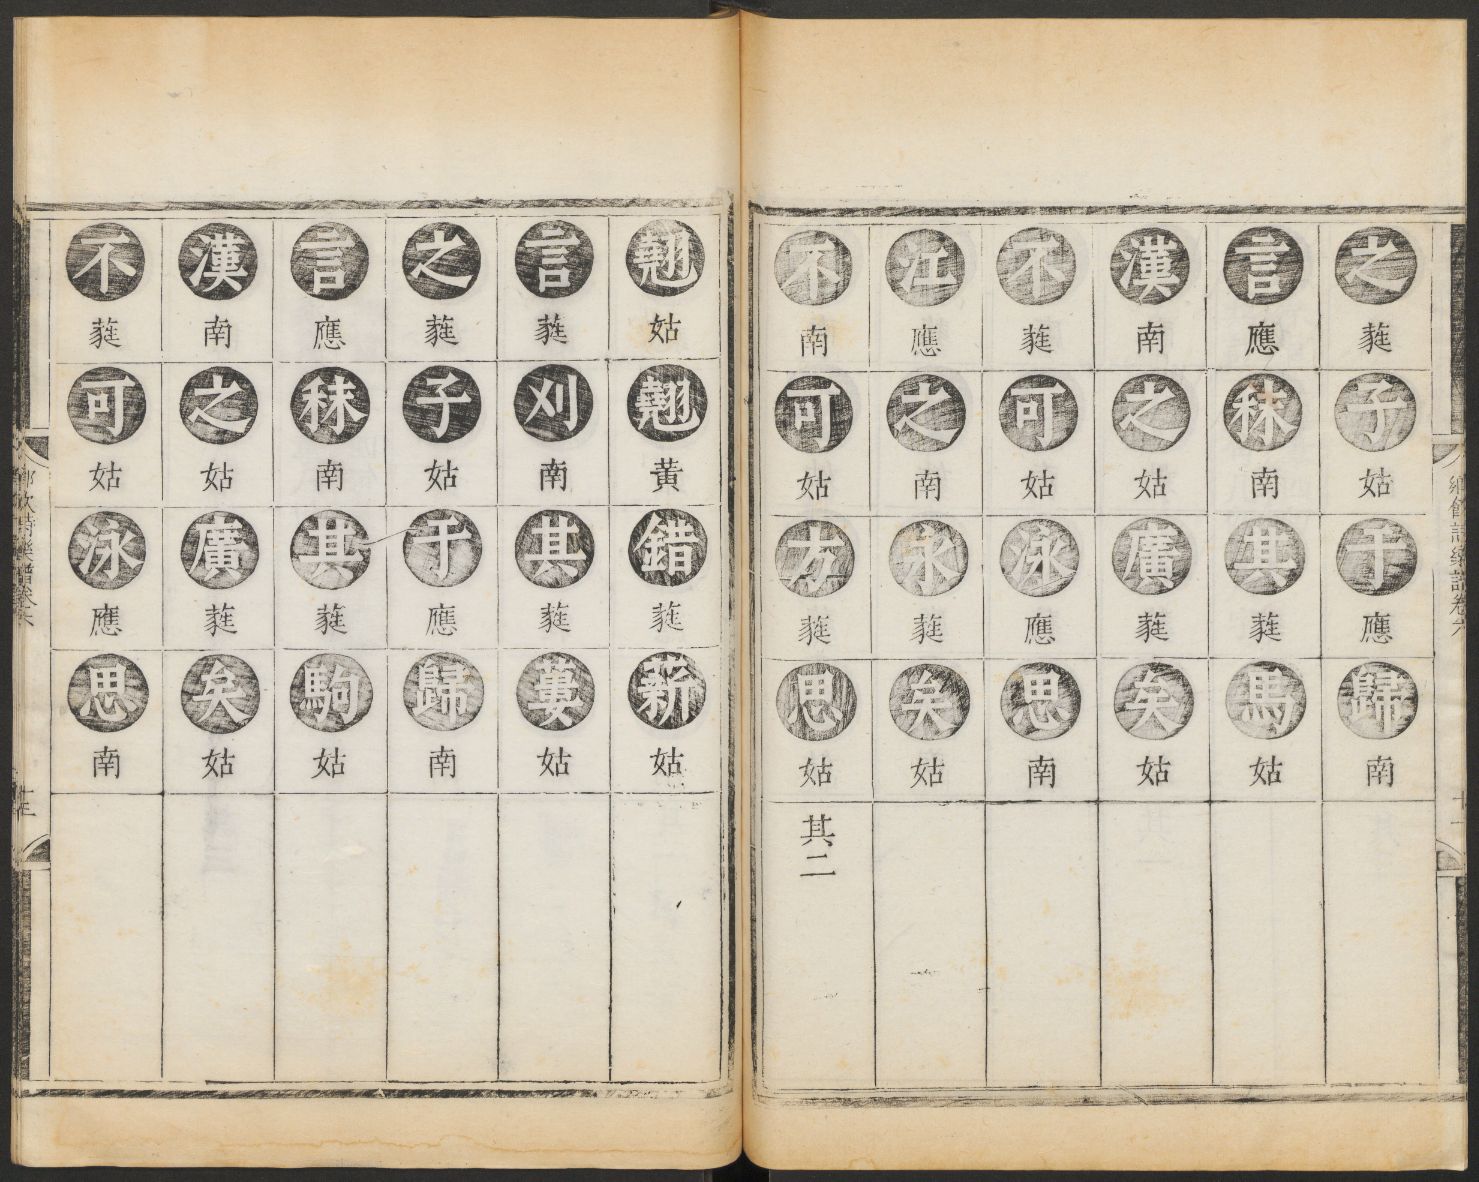 鄉飲詩樂譜卷六
之蕤子姑于應歸南
言應秣南其蕤馬姑
漢南之姑廣蕤矣姑
不蕤可姑泳應思南
江應之南永蕤矣姑
不南可姑方蕤思姑其二
翹姑翹黃錯蕤薪姑
言蕤刈南其蕤蔞姑
之蕤子姑于應歸南
言應秣南其蕤駒姑
漢南之姑廣蕤矣姑
不蕤可姑泳應思南
鄉飲詩樂譜卷六